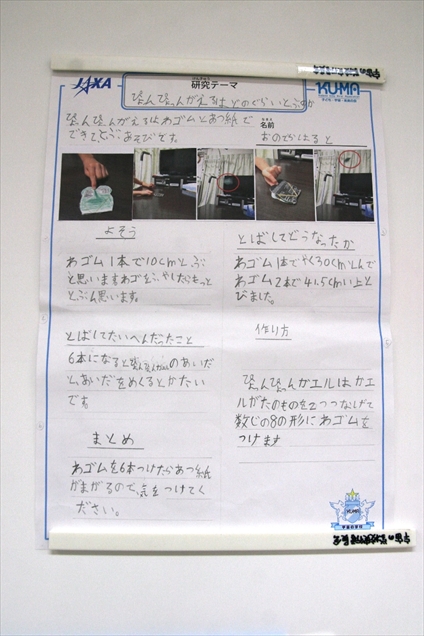 JAXA
研究テーマ
KUMA
ぴょんぴょんがえるはどのぐらいとぶのか
ぴょんぴょんがえるはわゴムとあつ紙で
できてとぶあそびです。
名前
よそう
わゴム1本で10cmとぶ
と思いますわゴムをふやしたらもっと
とぶと思います。
とばしてどうなったか
わゴム1本でやく30cmとんで
わゴム2本で41.5cmい上と
びました。
とばしてたいへんだったこと
6本になるとぴょんぴょんがえるのあいだ
とあいだをめくるとかたい
です。
作り方
ぴょんぴょんカエルはカエ
ルがたのものを2つつなげて
数じの8の形にわゴムを
つけます
まとめ
わゴムを6本つけたらあつ紙
がまがるので、気をつけてく
ださい。
KUMA
宇宙の学校